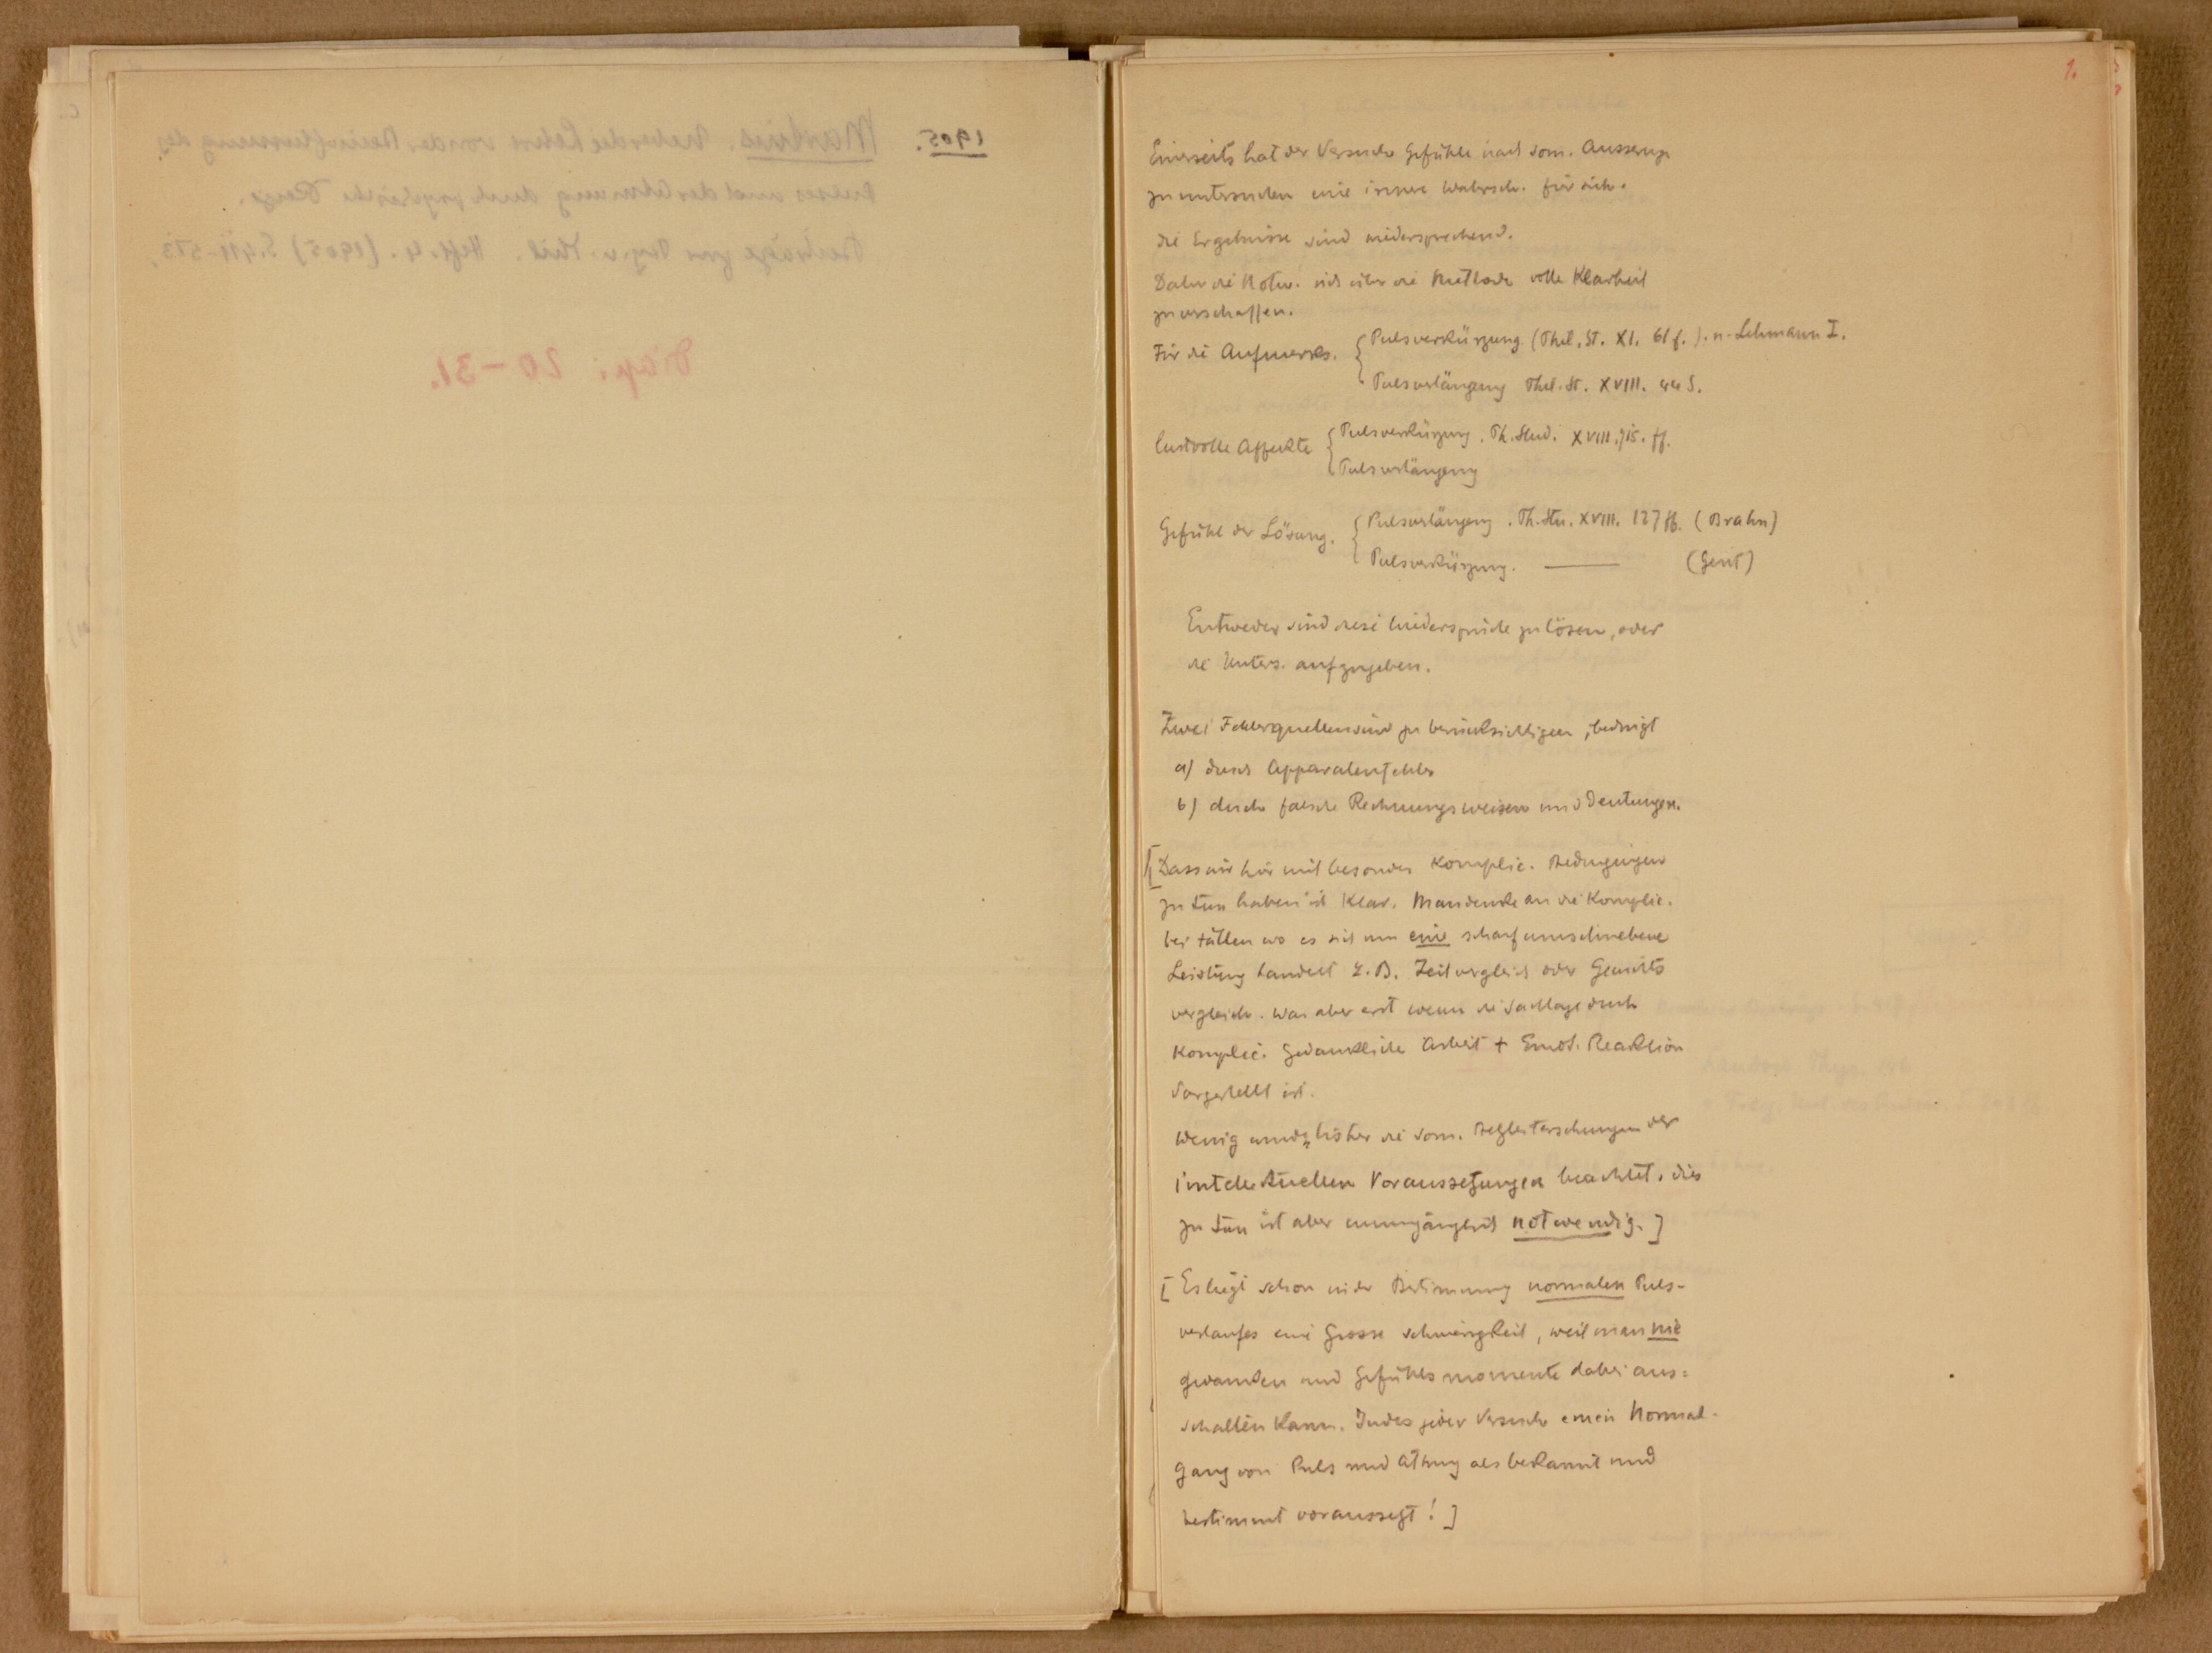 1.
Einerseits hat der Versuch Gefühle nach som. Ausserung
zu untersuchen eine innere Wahrsch. für sich.
die Ergebnisse sind widersprechend.
Daher die Notw. sich über die Methode volle Klarheit
zu verschaffen.
Für die Aufmerks. { Pulsverkürzung (Phil. St. XI. 61 f.). n. Lehmann I.
Pulsverlängerung Phil. St. XVIII.
lustvolle Affekte { Pulsverkürzung. Ph. Stud. XVIII. 715. ff.
Pulsverlängerung
Gefühl der Lösung. { Pulsverlängerung. Ph. Stu. XVIII. 127 ff. (Brahn)
Pulsverkürzung. —— (Gent)
Entweder sind diese Widersprüche zu lösen, oder
die Unters. aufzugeben.
Zwei Fehlerquellen sind zu berücksichtigen, bedingt
a) durch Apparatenfehler
b) durch falsche Rechnungsweisen und Deutungen.
[Dass wir hier mit besonders komplic. Bedingungen
zu tun haben ist klar. Man denke an die Komplic.
bei Fällen wo es sich um eine scharf umschriebene
Leistung handelt z.B. Zeitvergleich oder Gewichts
vergleich. Was aber erst wenn die Sachlage durch
komplic. gedankliche Arbeit + Emot. Reaktion
dargestellt ist.
Wenig wurden bisher die som. Begleiterscheinungen der
intellektuellen Voraussetzungen beachtet. dies
zu tun ist aber unumgänglich notwendig.]
[Es liegt schon in der Bestimmung normalen Puls-
verlaufes eine grosse Schwierigkeit, weil man nie
Gedanken und Gefühlsmomente dabei aus=
schalten kann. Indes jeder Versuch einen Normal-
gang von Puls und Atmung als bekannt und
bestimmt voraussetzt!]